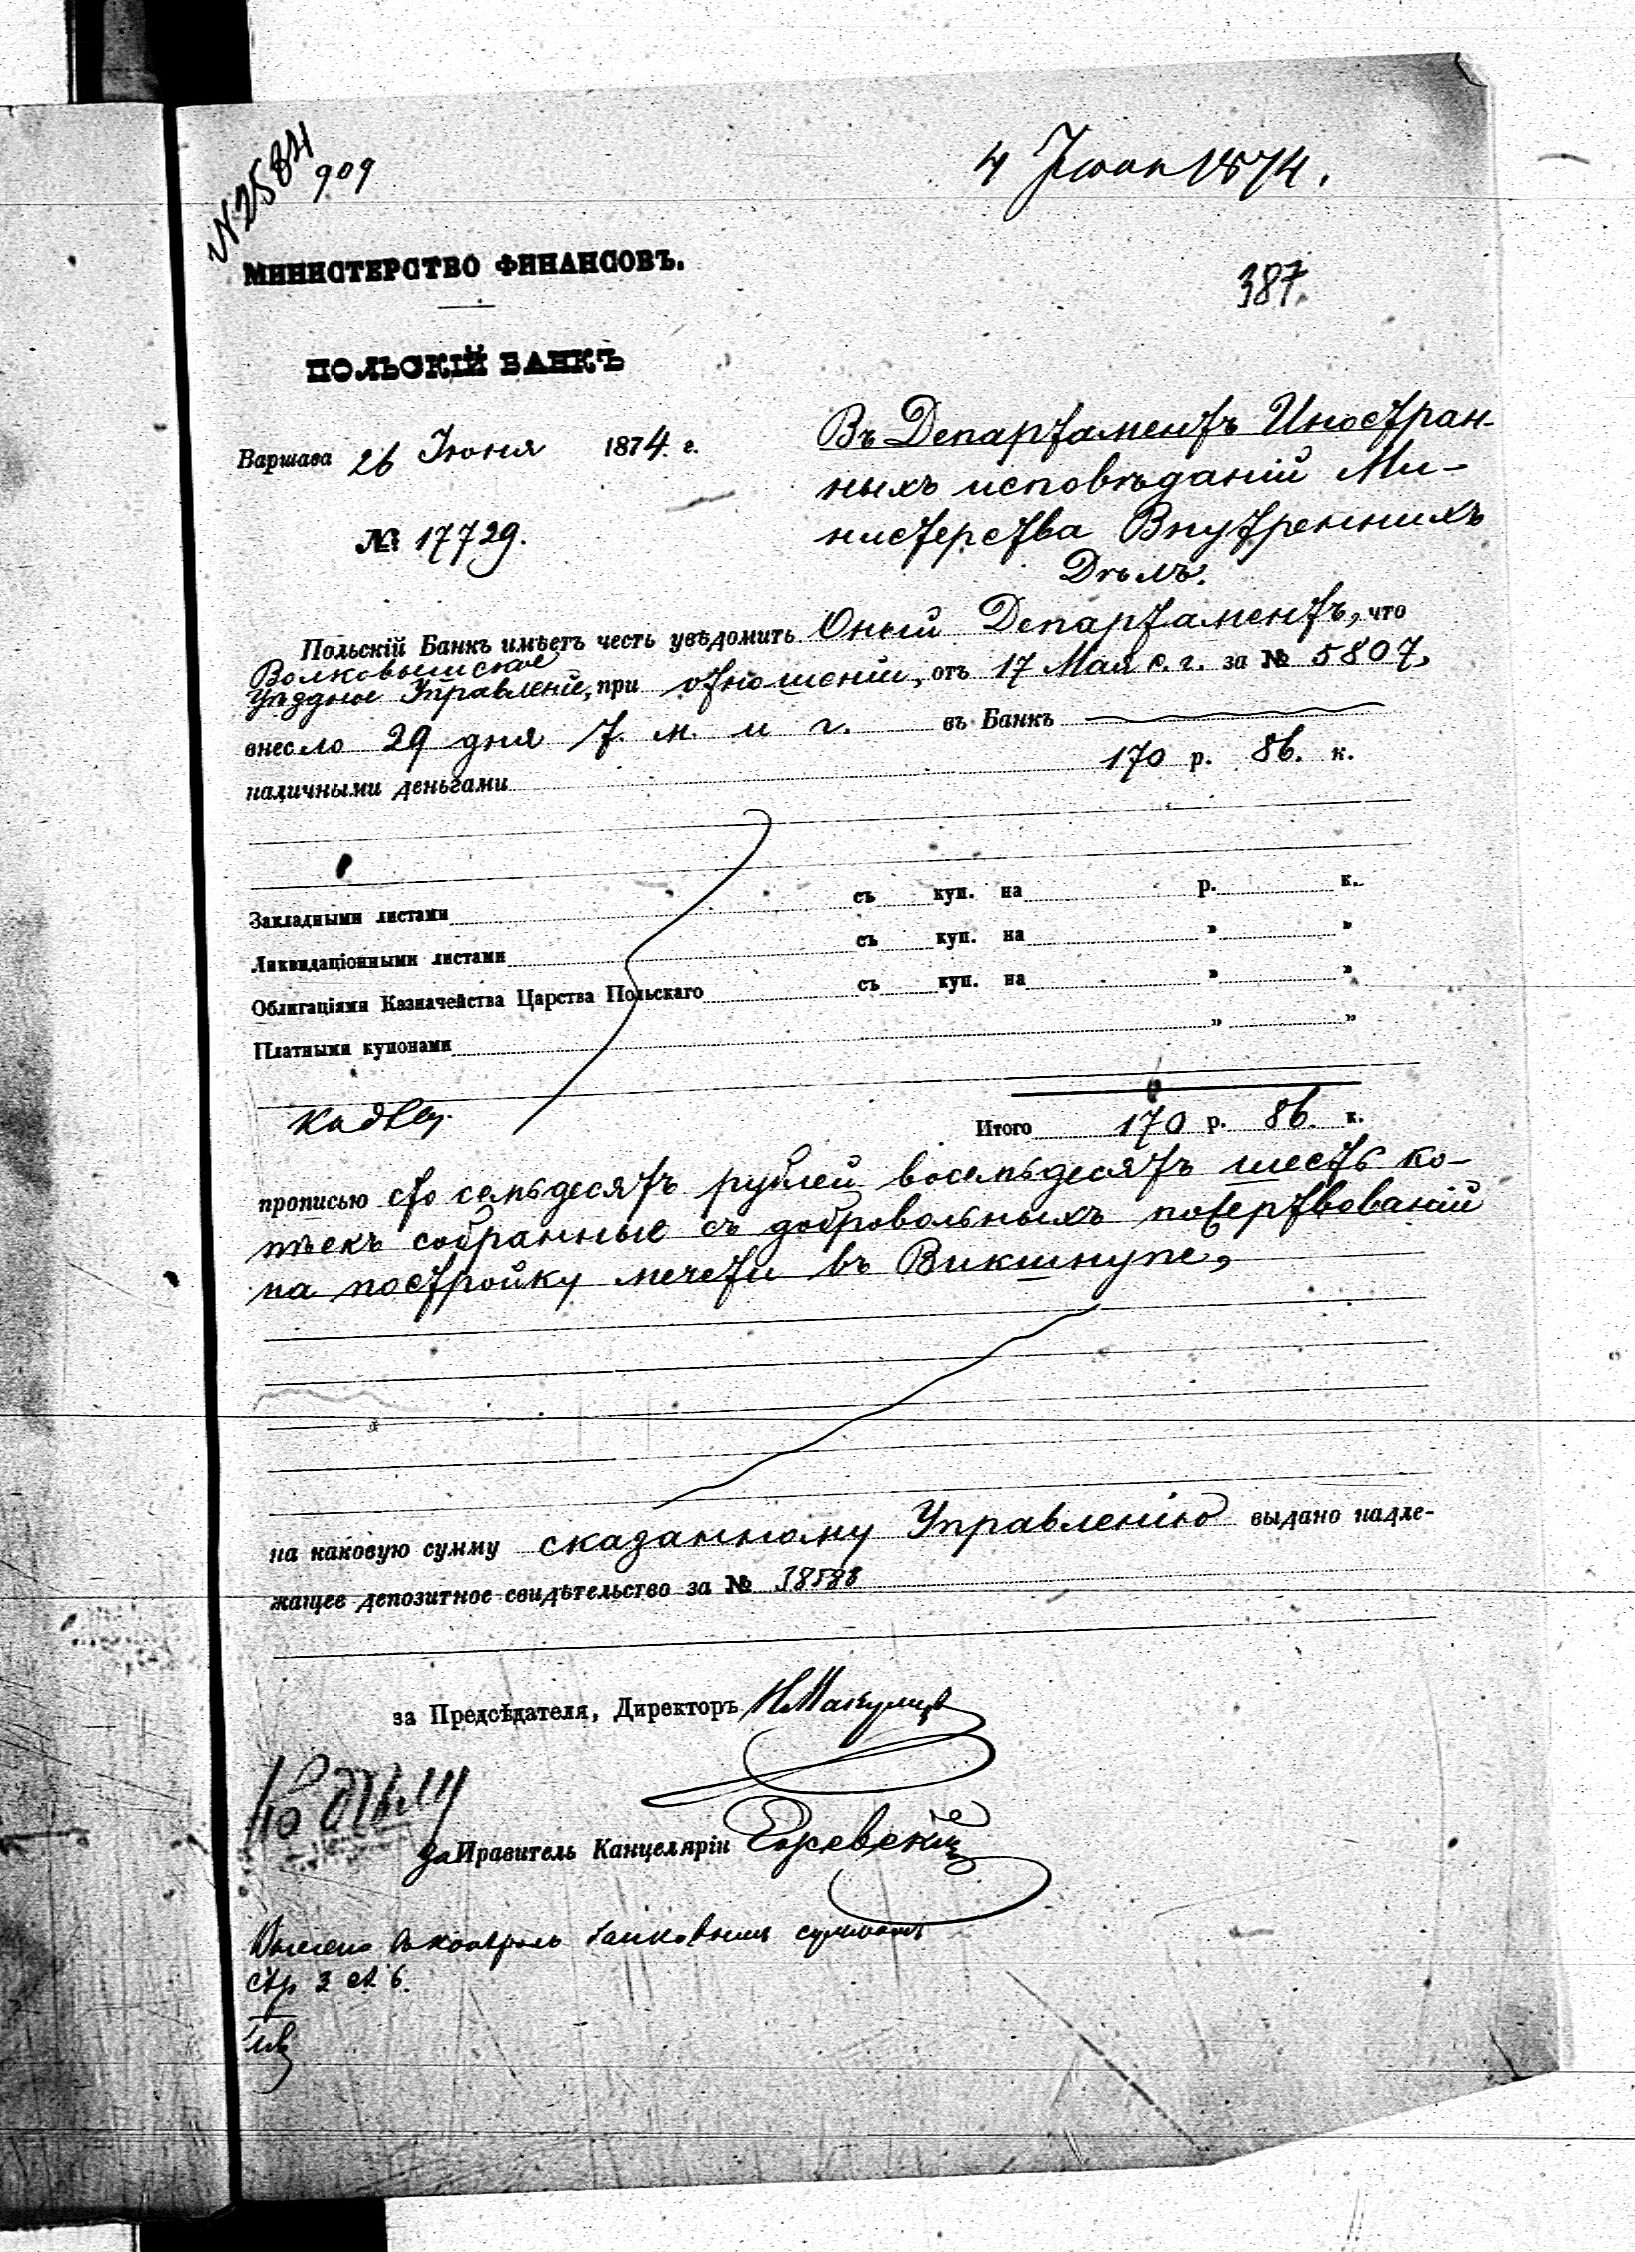 № 2584
909
4 Іюля 1874.
387.
МИНИСТЕРСТВО ФИНАНСОВЪ.
ПОЛЬСКІЙ БАНКЪ
Варшава 26 Іюня 1874 г.
№ 17729.
Въ Департаментъ Иностран-
ныхъ исповѣданій Ми-
нистерства Внутреннихъ
Дѣлъ.
Польскій Банкъ имѣетъ честь увѣдомить Оный Департаментъ, что
Волковышское
Уѣздное Управленіе, при отношеніи, отъ 17 Мая с. г. за № 5807,
внесло 29 дня т. м. и г. въ Банкъ
наличными деньгами 170 р. 86. к.
Закладными листами съ куп. на р. к.
Ликвидаціонными листами съ куп. на " "
Облигаціями Казначейства Царства Польскаго съ куп. на " "
Платными купонами " "
Итого 170 р. 86. к.
прописью сто семьдесятъ рублей восемьдесятъ шесть ко-
пѣекъ собранные съ добровольныхъ пожертвованій
на постройку мечети въ Викшнупе,
на каковую сумму сказанному Управленію выдано надле-
жащее депозитное свидѣтельство за № 38588
за Предсѣдателя, Директоръ
за Правитель Канцеляріи
стр 3 ст. 6.